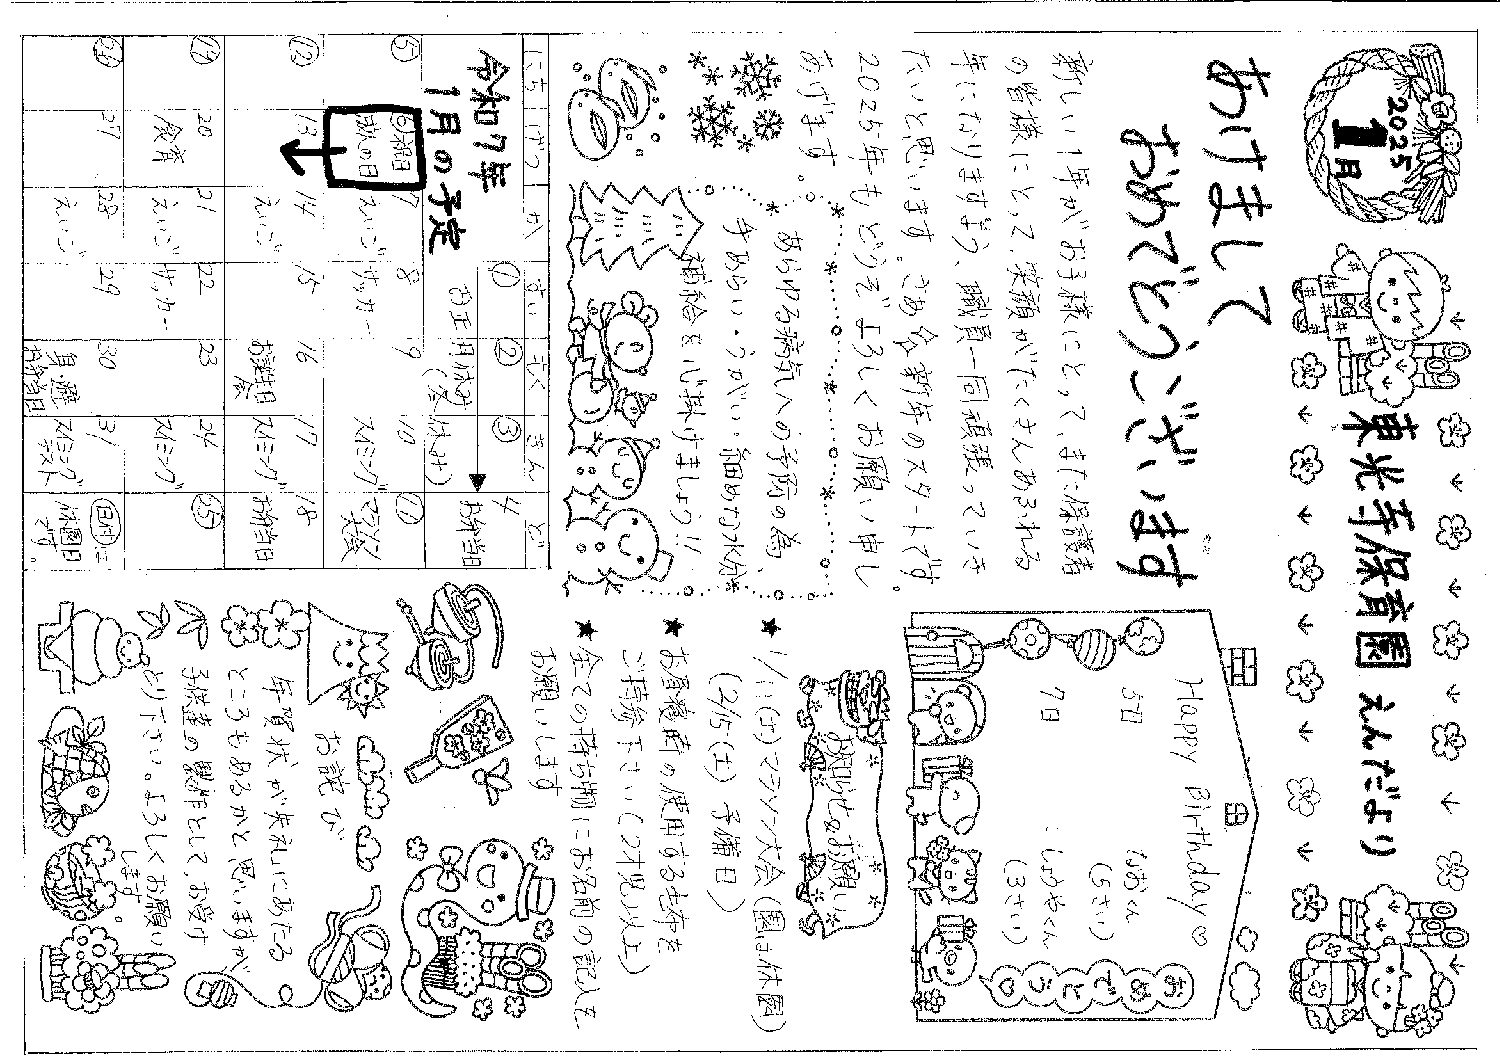 2025
1月
東光寺保育園 えんだより
あけまして
おめでとうございます
新しい1年がお子様にとって、また保護者
の皆様にとって、笑顔がたくさんあふれる
年になりますよう、職員一同頑張っていき
たいと思います。さあ新年のスタートです。
2025年もどうぞよろしくお願い申し
あげます。
あらゆる病気への予防の為、
手あらい・うがい・細めな水分
補給を心掛けましょう!!
Happy Birthday♡
5日
(5さい)
7日 : しょうやくん
(3さい)
おめでとう♡
お知らせ&お願い
★ 1/11(土)マラソン大会(園は休園)
(2/15(土) 予備日)
★ お昼寝時の使用する毛布を
ご持参下さい(2才児以上)
★ 全ての持ち物にお名前の記入を
お願いします
お詫び
年賀状が失礼にあたる
ところもあるかと思いますが
子供達の製作として、お受け
とり下さい。よろしくお願い
します。
令和7年
1月の予定
にち げつ か すい もく きん ど
① ② ③ 4
お正月休み
お弁当日
⑤ ⑥祝日 7 8 9 10 ⑪
えいご サッカー スイミング マラソン
大会
⑫ 13 14 15 16 17 18
えいご お誕生日
会 スイミング お弁当日
⑲ 20 21 22 23 24 ㉕
食育 えいご サッカー スイミング
㉖ 27 28 29 30 31
えいご 身体
お弁当日 スイミング
休園日
です。